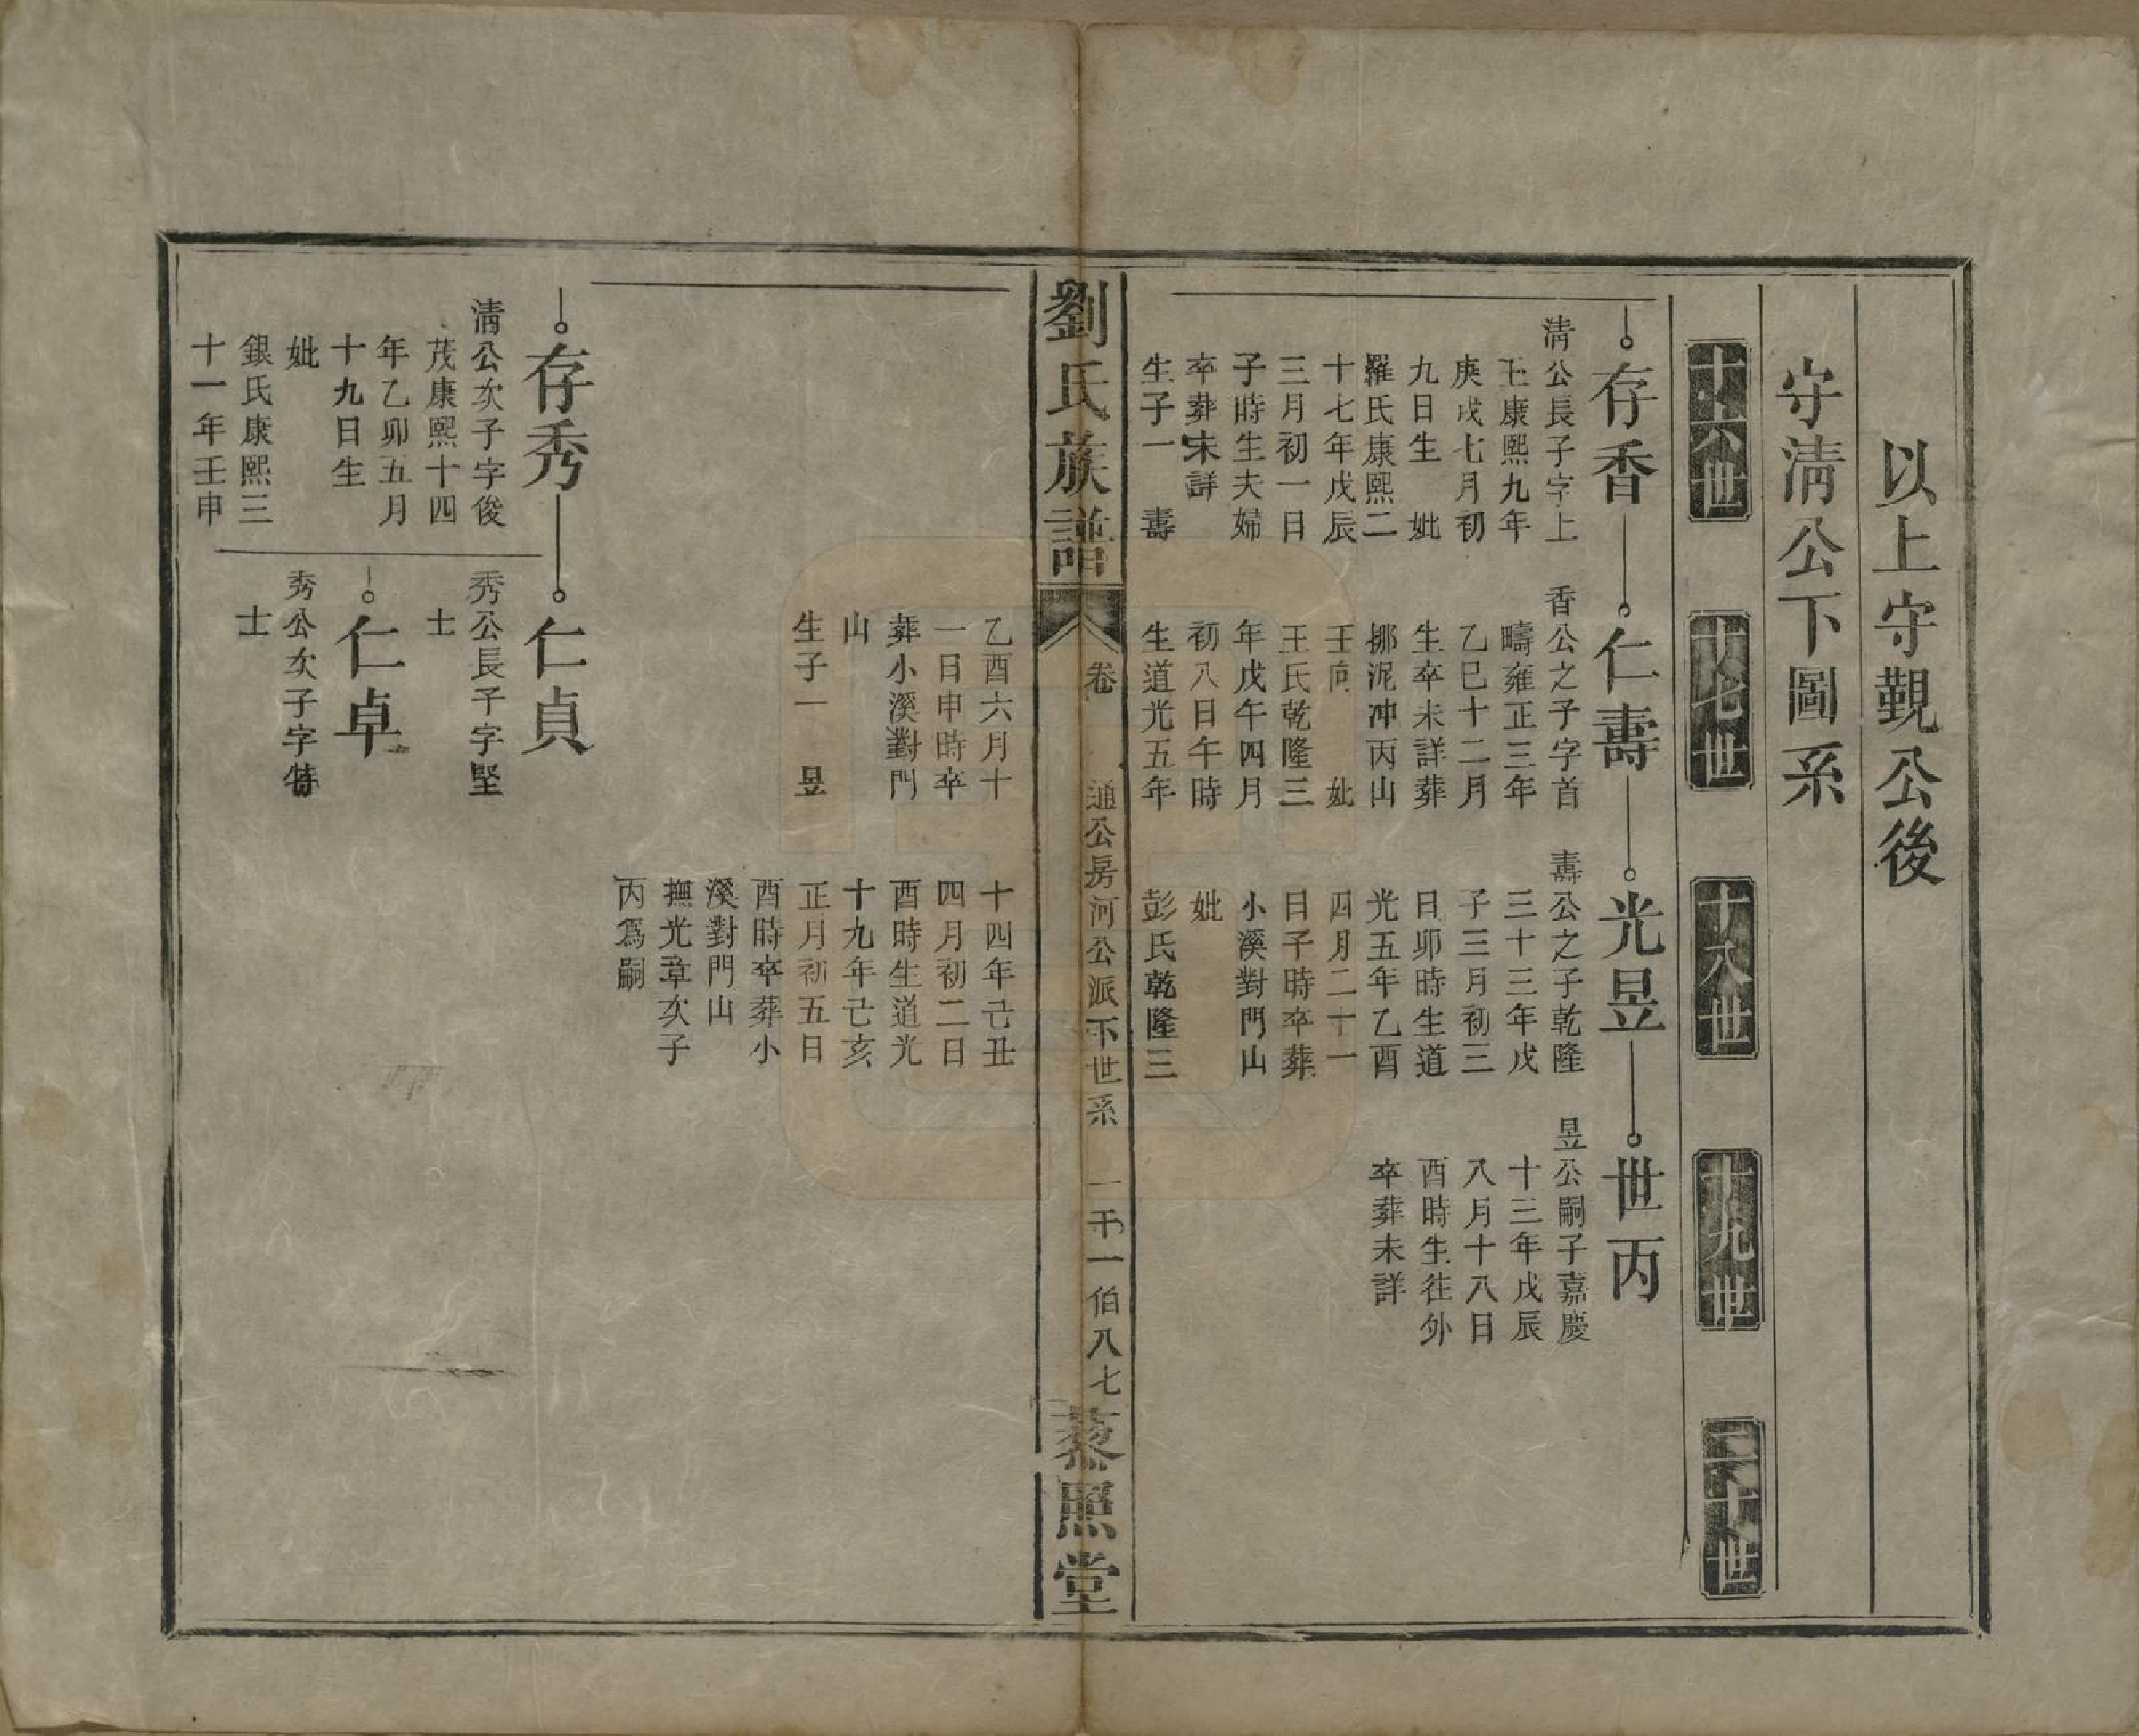 以上守觀公後
守清公下圖系
十六世
十七世
十八世
十九世
二十世
存香
清公長子字上
玉康熙九年
庚戌七月初
九日生　妣
羅氏康熙二
十七年戊辰
三月初一日
子時生夫婦
卒葬未詳
生子一　壽
仁壽
香公之子字首
疇雍正三年
乙巳十二月
生卒未詳葬
挪泥冲丙山
壬向　　妣
王氏乾隆三
年戊午四月
初八日午時
生道光五年
光昱
壽公之子乾隆
三十三年戊
子三月初三
日卯時生道
光五年乙酉
四月二十一
日子時卒葬
小溪對門山
妣
彭氏乾隆三
世丙
昱公嗣子嘉慶
十三年戊辰
八月十八日
酉時生往外
卒葬未詳
劉氏族譜
卷
通公房河公派下世系
一千一伯八七
藜照堂
乙酉六月十
一日申時卒
葬小溪對門
山
生子一　昱
十四年己丑
四月初二日
酉時生道光
十九年己亥
正月初五日
酉時卒葬小
溪對門山
撫光章次子
丙爲嗣
存秀
清公次子字俊
茂康熙十四
年乙卯五月
十九日生
妣
銀氏康熙三
十一年壬申
仁貞
秀公長子字堅
士
仁卓
秀公次子字特
士